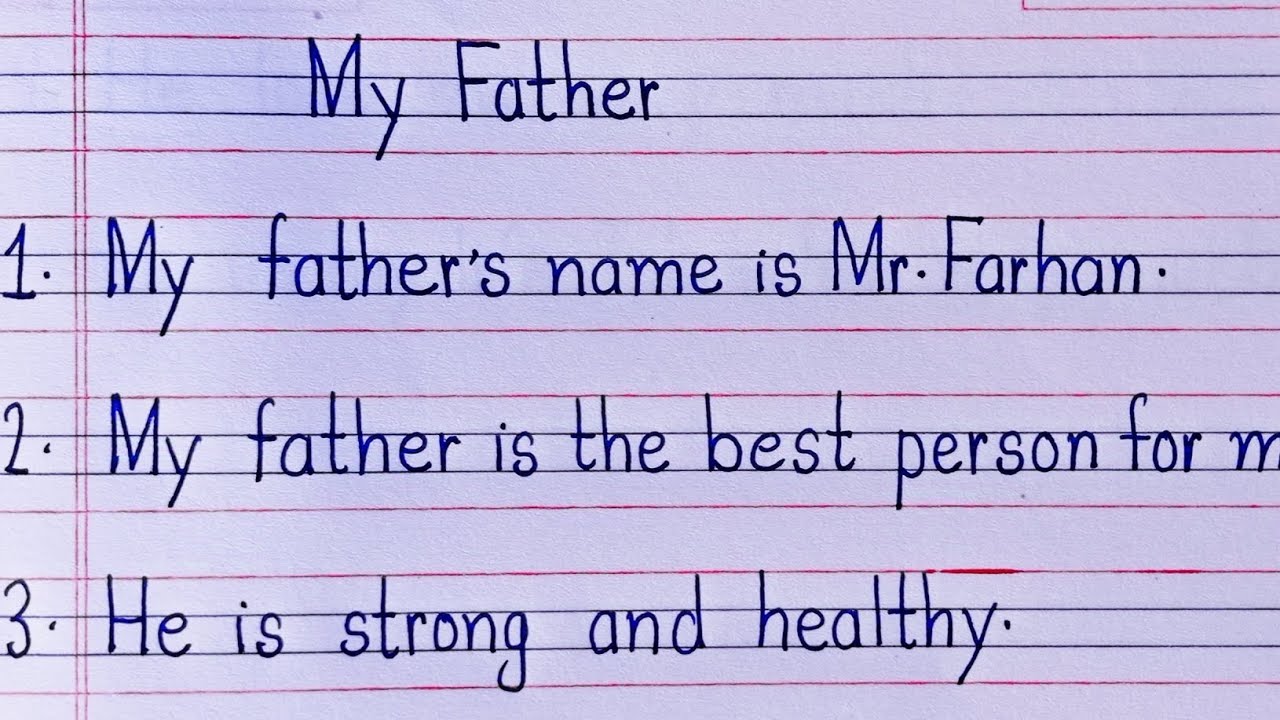 My Father
1. My father's name is Mr. Farhan.
2. My father is the best person for m
3. He is strong and healthy.